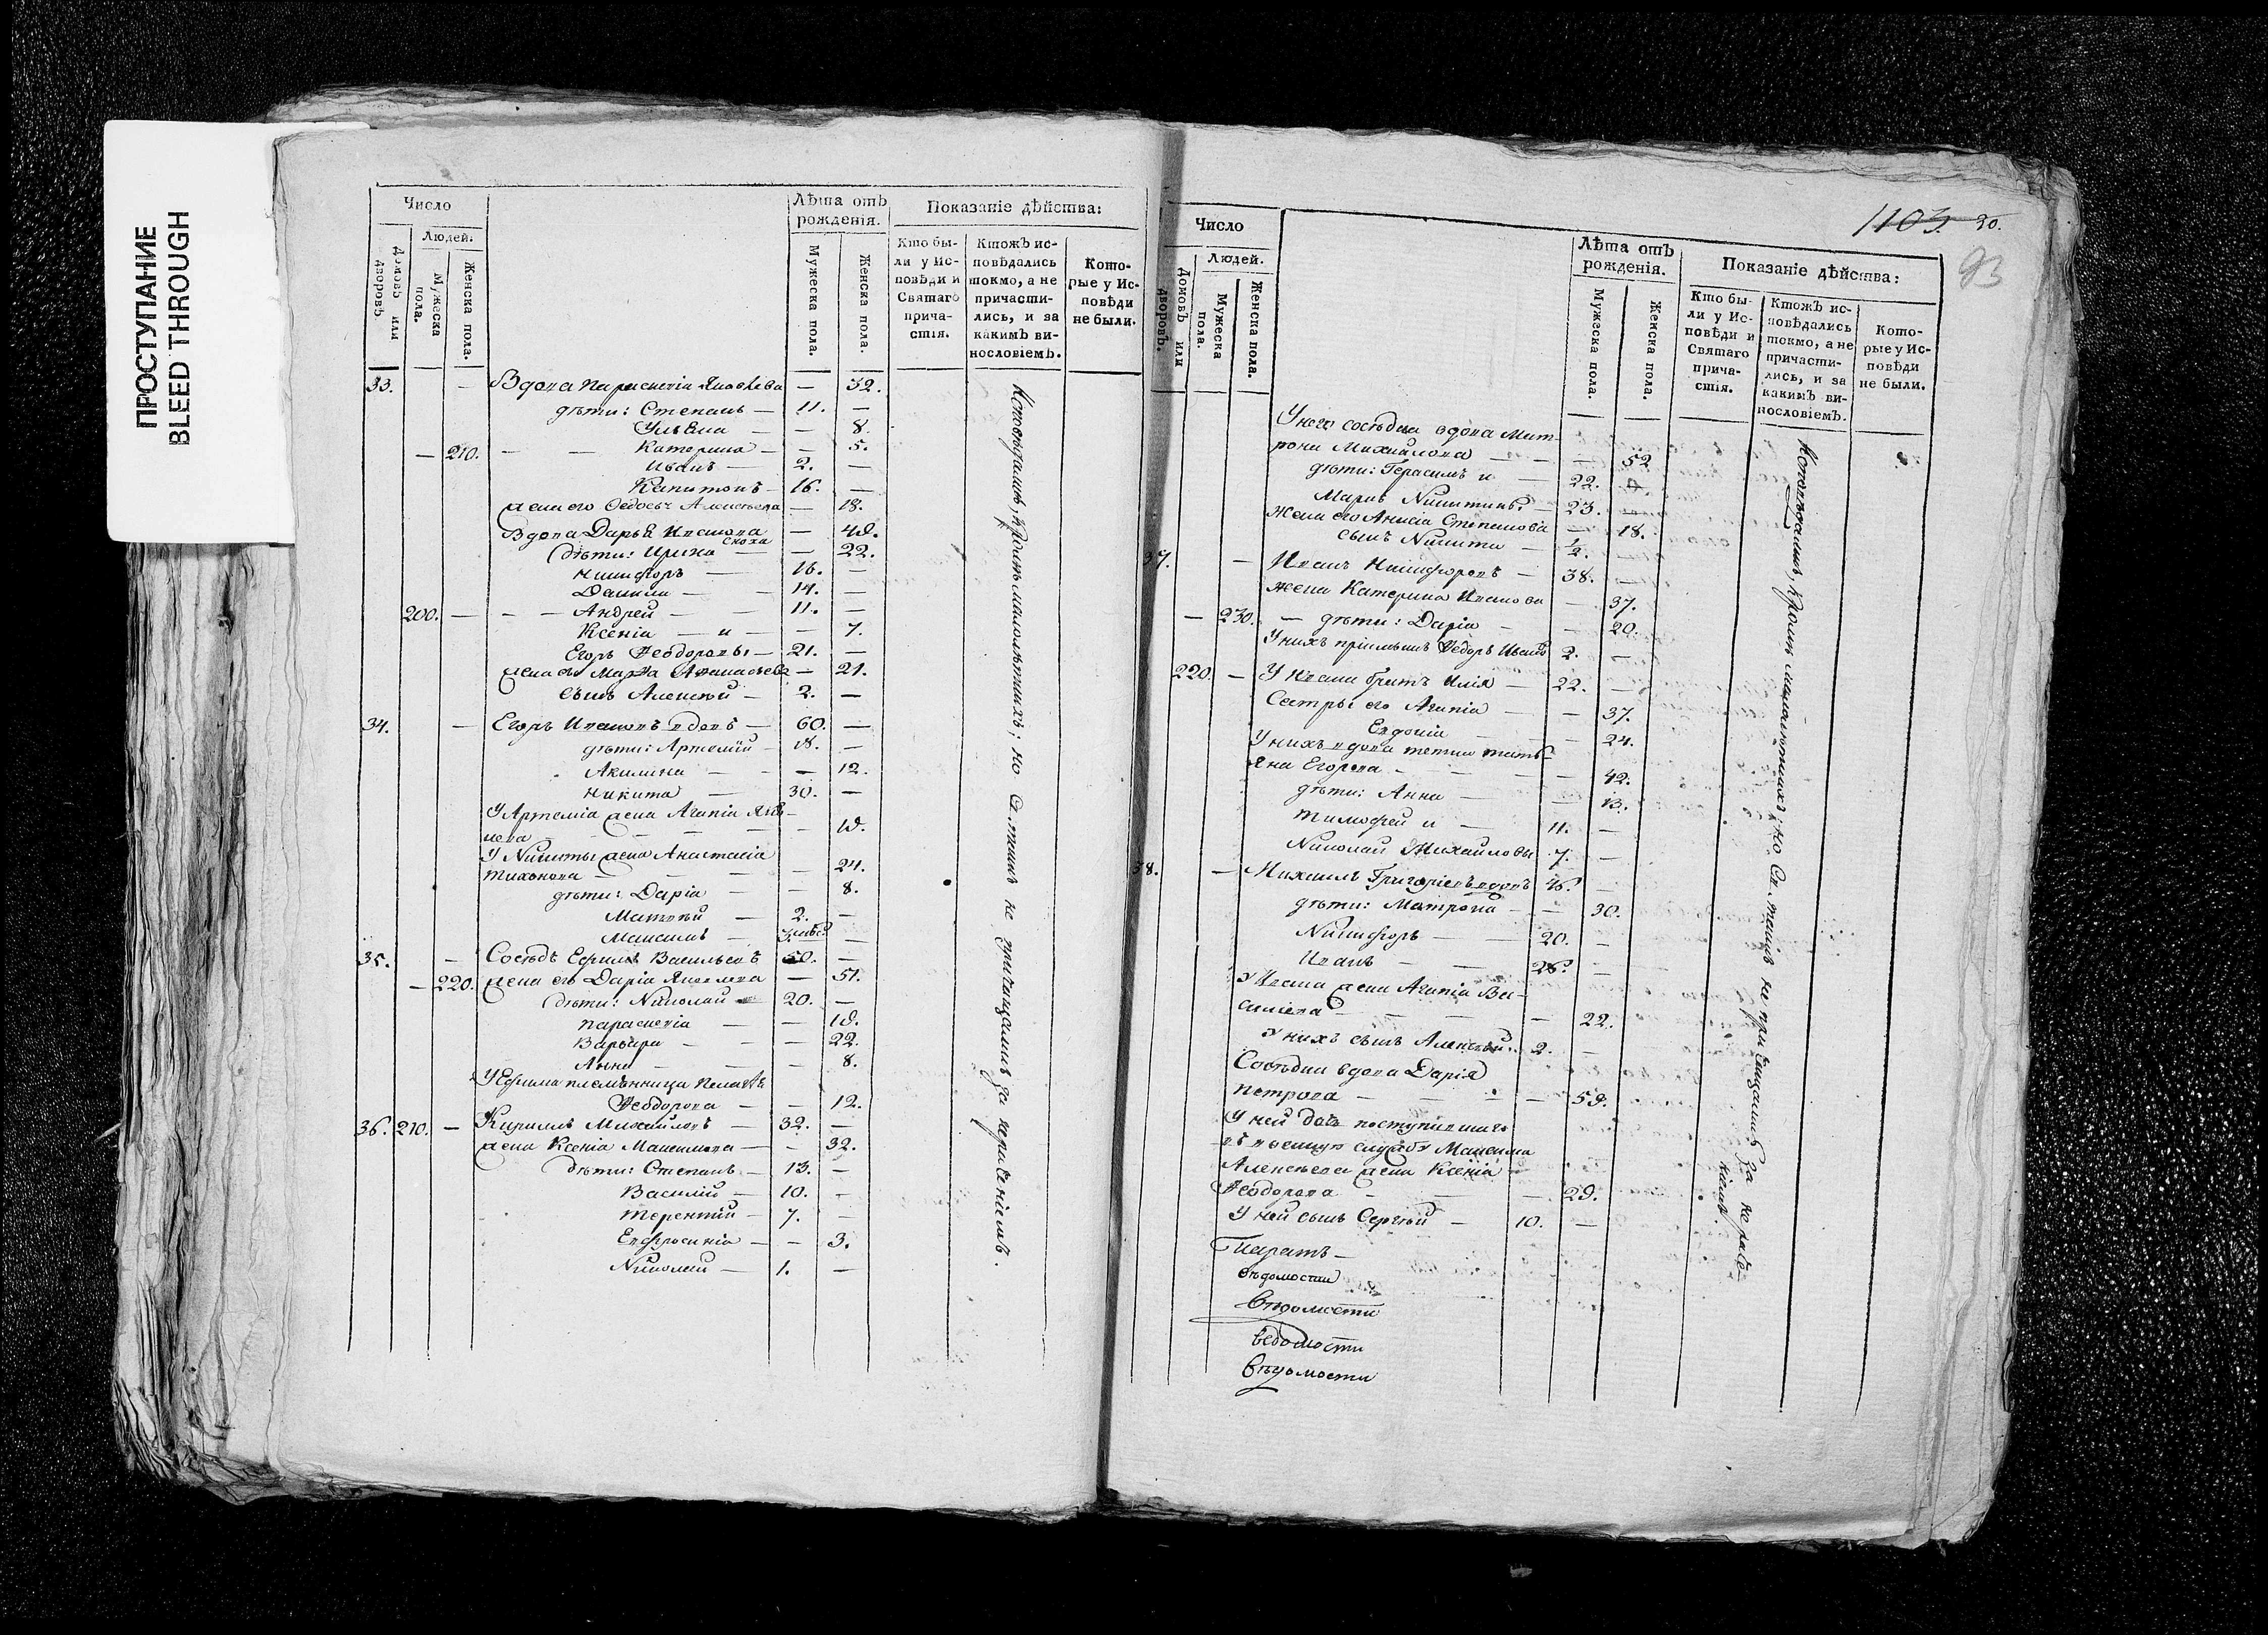 ПРОСТУПАНИЕ
BLEED THROUGH
Число
Людей.
Домовъ или дворовъ.
Мужеска пола.
Женска пола.
Лѣта отъ рожденія.
Мужеска пола.
Женска пола.
Показаніе дѣйства:
Кто были у Исповѣди и Святаго причастія.
Ктожъ исповѣдались токмо, а не причастились, и за какимъ винословіемъ.
Которые у Исповѣди не были.
33. — Вдова Параскевія Яковлева — 32.
дѣти: Степанъ — 11. —
Ульяна — — 8.
— 210. — — Катерина — — 5.
Иванъ — 2. —
Капитонъ — 16. —
жена его Федосья Алексѣева — 18.
Вдова Дарья Иванова — 48.
дѣти: Ирина сноха — — 22.
Никифоръ — 16. —
Данила — 14. —
200. — — — Андрей — 11. —
Ксенія — и — — 7.
Егоръ Ѳеодоровы — 21. —
жена его Марѳа Аѳанасьева — 21.
сынъ Алексѣй — 2. —
34. — Егоръ Ивановъ вдовъ — 60. —
дѣти: Артемій — 18. —
Акилина — — 12.
Никита — 30. —
У Артемія жена Агапія Яковлева — — 18.
У Никиты жена Анастасія
Тихонова — — 24.
дѣти: Дарія — — 8.
Матвѣй — 2. —
Максимъ — —
35. — Сосѣдъ Ефимъ Васильевъ 50. —
— 220. жена его Дарія Яковлева — 51.
дѣти: Николай — 20. —
Параскевія — — 18.
Варвара — — 22.
Анна — — 8.
У Ефима племянница Пелагѣя
Ѳеодорова — — 12.
36. 210. — Кирилъ Михайловъ — 32. —
жена Ксенія Максимова — — 32.
дѣти: Степанъ — 13. —
Василій — 10. —
Терентій — 7. —
Евфросинія — — 3.
Николай — 1. —
Исповѣдались, кромѣ малолѣтнихъ; но Св. таинъ не приобщались за нераченіемъ.
1103. 20.
93
Число
Людей.
Домовъ или дворовъ.
Мужеска пола.
Женска пола.
Лѣта отъ рожденія.
Мужеска пола.
Женска пола.
Показаніе дѣйства:
Кто были у Исповѣди и Святаго причастія.
Ктожъ исповѣдались токмо, а не причастились, и за какимъ винословіемъ.
Которые у Исповѣди не были.
У него сосѣдка вдова Мат-
рона Михайлова — — — 52
дѣти: Герасимъ и — 22. —
Марко Никитины — 23. —
жена его Анисія Степанова — 18.
сынъ Никита — ½. —
37. — Иванъ Никифоровъ — 38. —
жена Катерина Иванова — 37.
— 230. — дѣти: Дарія — — 20.
У нихъ пріемышъ Ѳедоръ Ивановъ 2. —
220. — У Ивана братъ Илія — 22. —
Сестры его Агапія — — 37.
Евдокія — — 24.
У нихъ вдова тетка Тать-
яна Егорова — — 42.
дѣти: Анна — — 13.
Тимофей и — 11. —
Николай Михайловы 7. —
38. — Михаилъ Григорьевъ вдовъ 46. —
дѣти: Матрона — — 30.
Никифоръ — 20. —
Иванъ — 26. —
У Ивана жена Агапія Ва-
силіева — — 22.
У нихъ сынъ Алексѣй — 2. —
Сосѣдка вдова Дарія
Петрова — — 59.
У ней поступившаго
въ военную службу Максима
Алексѣева жена Ксенія
Ѳеодорова — — 29.
У ней сынъ Сергѣй — 10. —
вѣдомости
вѣдомости
ведомости
вѣдомости
Исповѣдались, кромѣ малолѣтнихъ; но Св. таинъ не приобщались за нераче-
ніемъ.